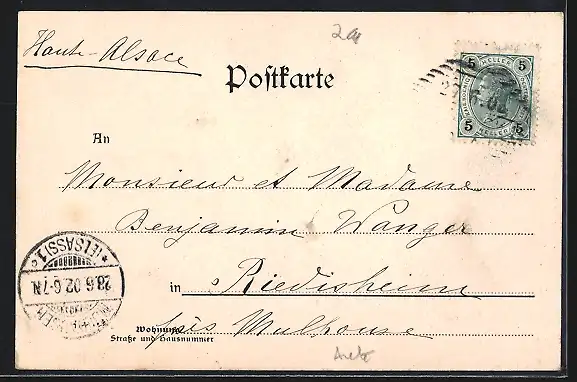 2a
Haute-Alsace
Postkarte
5 5
5 5
An
Monsieur et Madame
Benjamin Wanger
in Riedisheim
près Mulhouse
Wohnung
Straße und Hausnummer
(ELSASS) 1
28.6.02.6-7N.